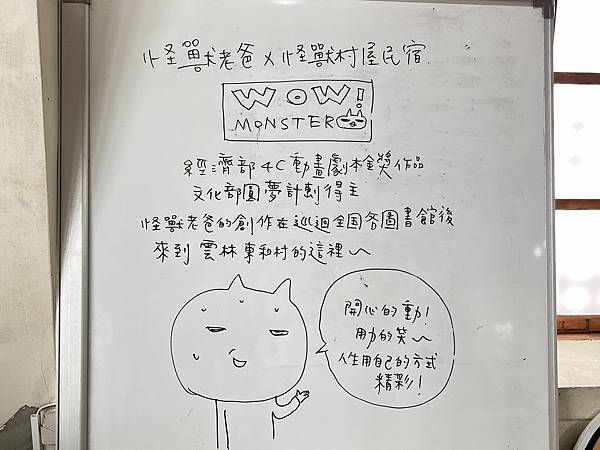 怪獸老爸 x 怪獸村屋民宿
WOW!
MONSTER
經濟部4C動畫劇本金獎作品
文化部圓夢計劃得主
怪獸老爸的創作在巡迴全国各圖書館後
來到雲林東和村的這裡~
開心的動!
用力的笑~
人生用自己的方式
精彩!